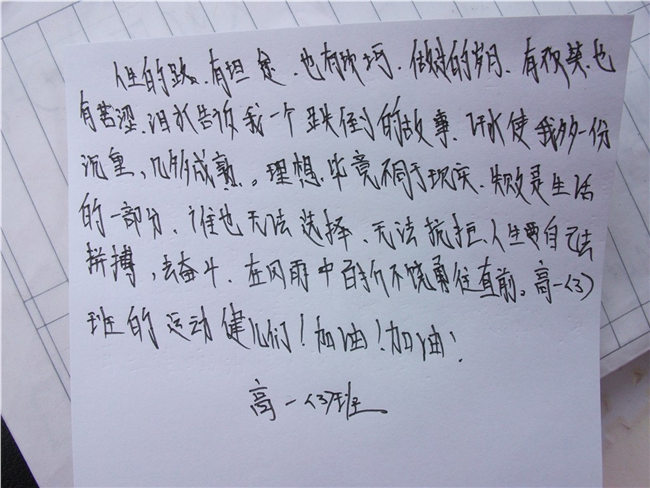 人生的路、有坦途、也有坎坷、做过的岁月、有欢笑也
有苦涩、泪水告诉我一个跌倒的故事、汗水使我多一份
沉重、几多成熟。理想毕竟不同于现实、失败是生活
的一部分、谁也无法选择、无法抗拒、人生要自己去
拼搏、去奋斗、在风雨中百折不饶勇往直前。高一(3)
班的运动健儿们！加油！加油！
高一(3)班